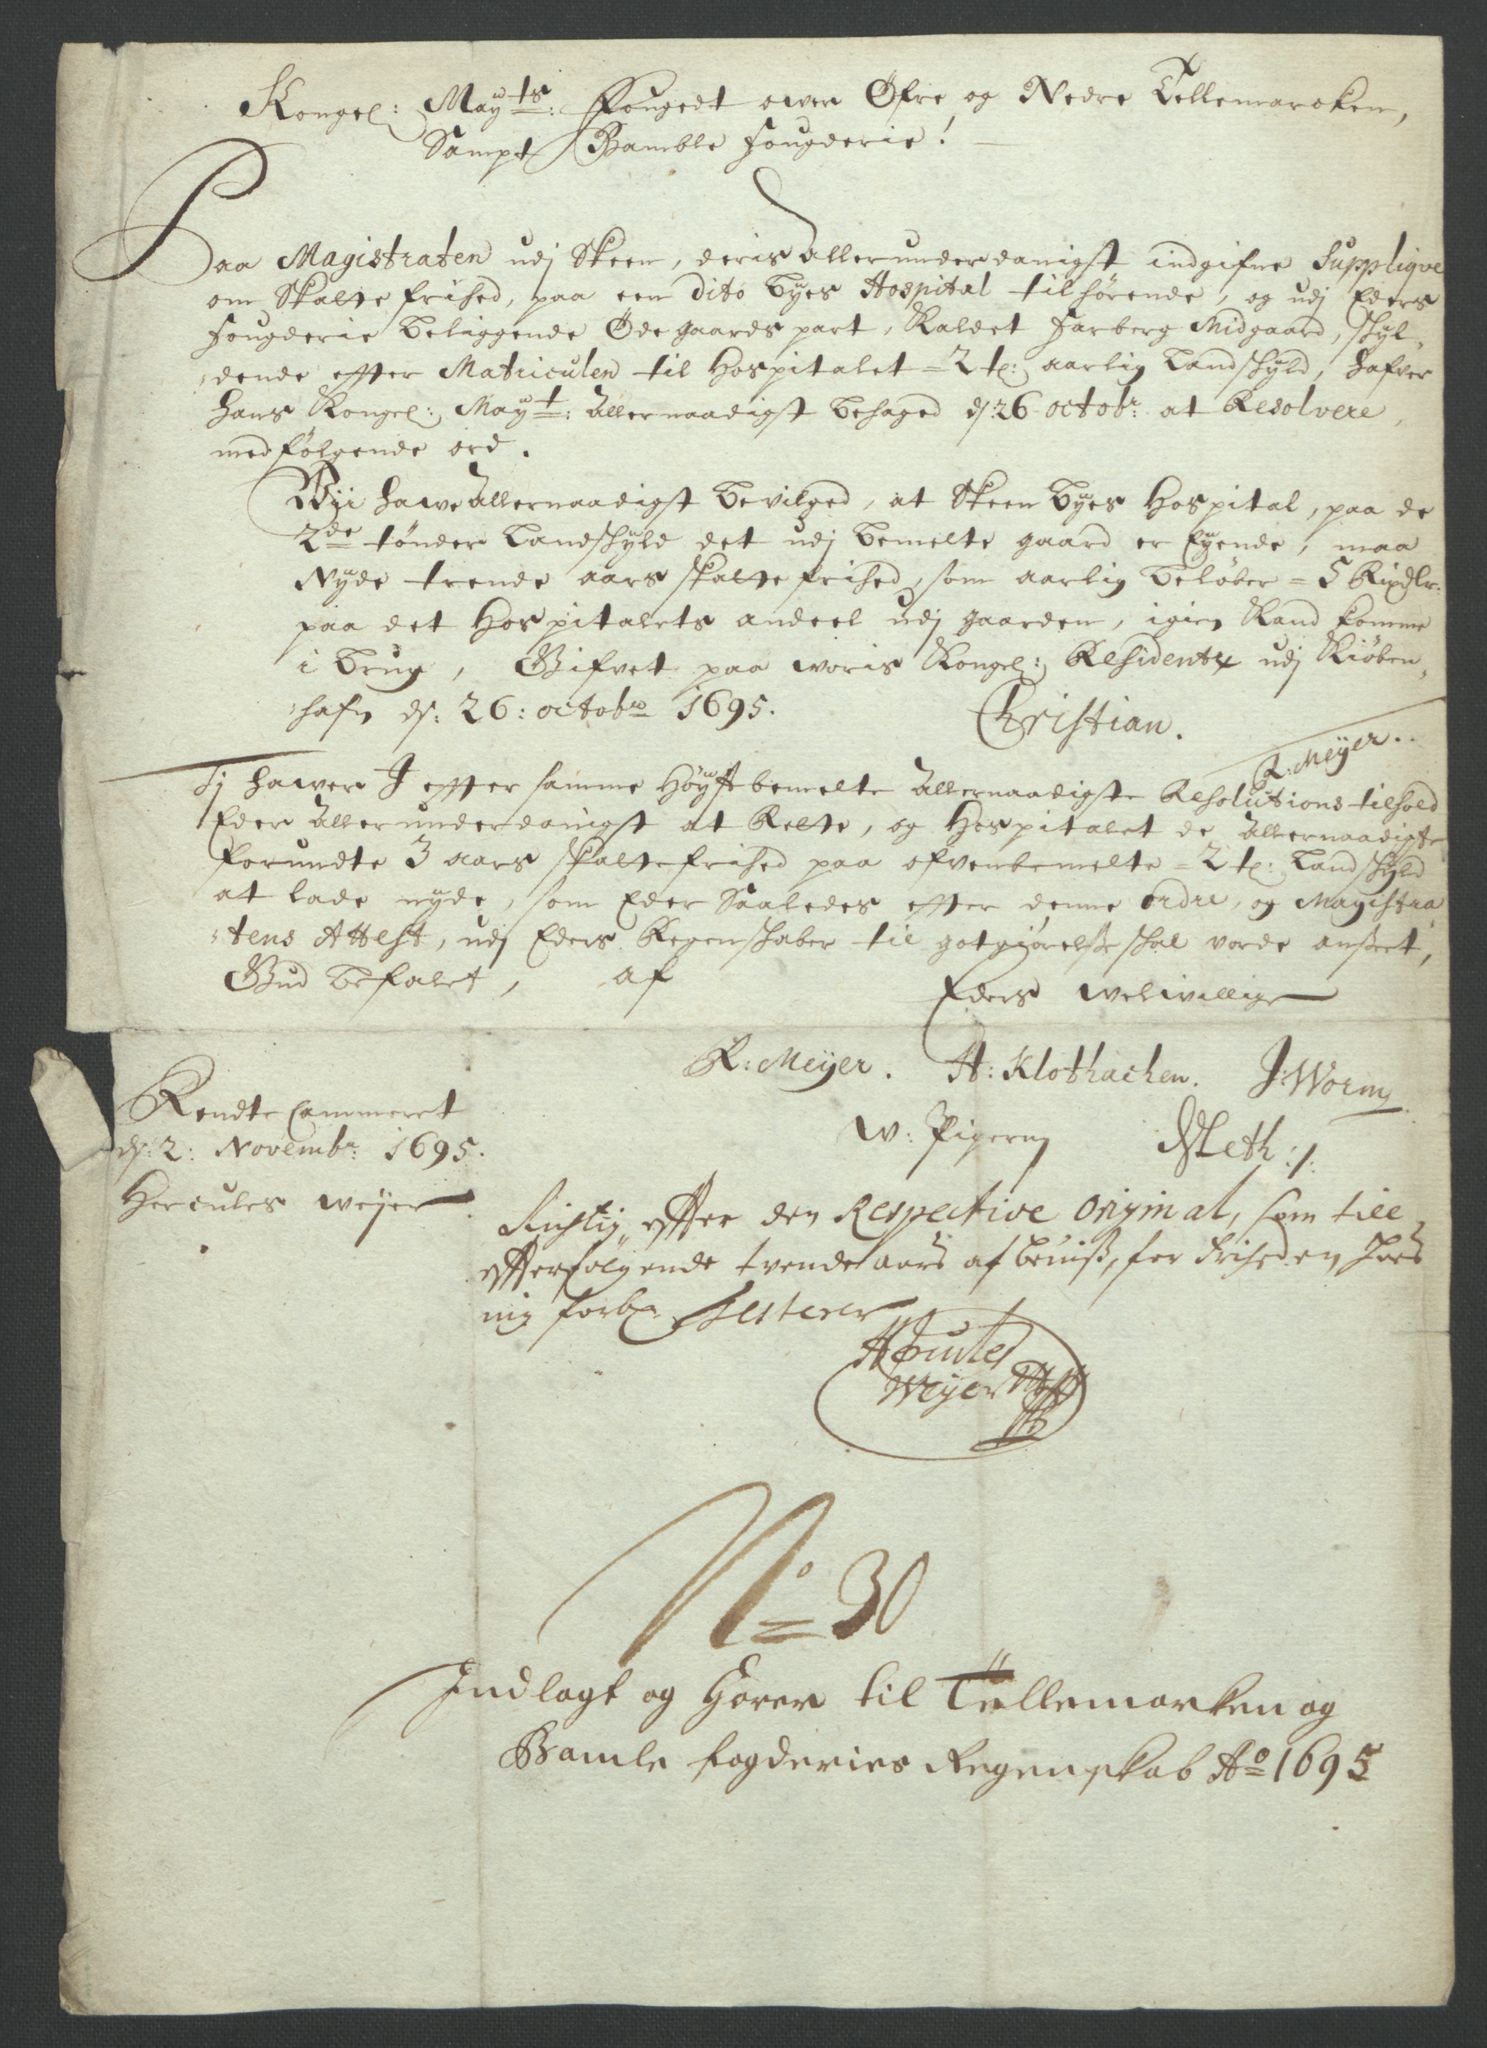 Kongel: Mayts: Fougedt ower Øfre og Nedre Tellemarcken,
Sampt Bamble Fougderie!
Paa Magistraten udj Skeen, deris allerunderdanigst indgifne Supplique
om Skatte frihed, paa een dito Byes Hospital tilhørende, og udj Eders
Fougderie beliggende Øde gaards part, Kaldet Farberg Midgaard, skyl-
dende effter Matriculen til Hospitalet = 2 t: aarlig Landskyld, hafver
hans Kongel: Mayt: allernaadigst behaged ds: 26 octobr: at Resolvere,
med følgende ord.
Wii hawe allernaadigst bevilged, at Skeen byes Hospital, paa de
2de tønder Landskyld det udj bemelte gaard er Eyende, maa
Nyde trende aars skatte frihed, som aarlig beløber = 5 Rixdlr:
paa det Hospitalets andeel udj gaarden, igien Kand komme
i brug, Gifvet paa woris Kongel: Residentz udj Kiøben-
hafn ds: 26: octobr 1695.
Christian.
R: Meyer.
Tj hawer I effter samme Høystbemelte allernaadigste Resolutions tilhold
Eder allerunderdanigst at Rette, og Hospitalet de allernaadigste
forundte 3 aars skatte frihed paa ofvenbemelte = 2 t: Landskyld
at lade nyde, som Eder Saaledes effter denne ordre, og Magistra-
tens Attest, udj Eders Regenskaber til gotgiørelse skal vorde anseet,
Gud befalet, af
Eders welwillige
R: Meyer. H: Klothachen. J: Worm
W: Pigern Meth:/:
Rendte Cammeret
ds: 2: Novembr: 1695.
Hercules Weyer
Rictig effter den Respective Original, som till
effterfølgende tvende aars af beviiss, for friheden hoes
mig forbr: testerer
Hercules
Weyer
No 30
Indlagt og Hører til Tellemarken og
Bamle fogderies Regenskab Ao 1695